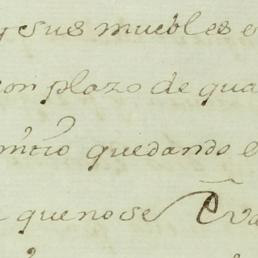 y sus muebles e
con plazo de qua
quedando e
que no se